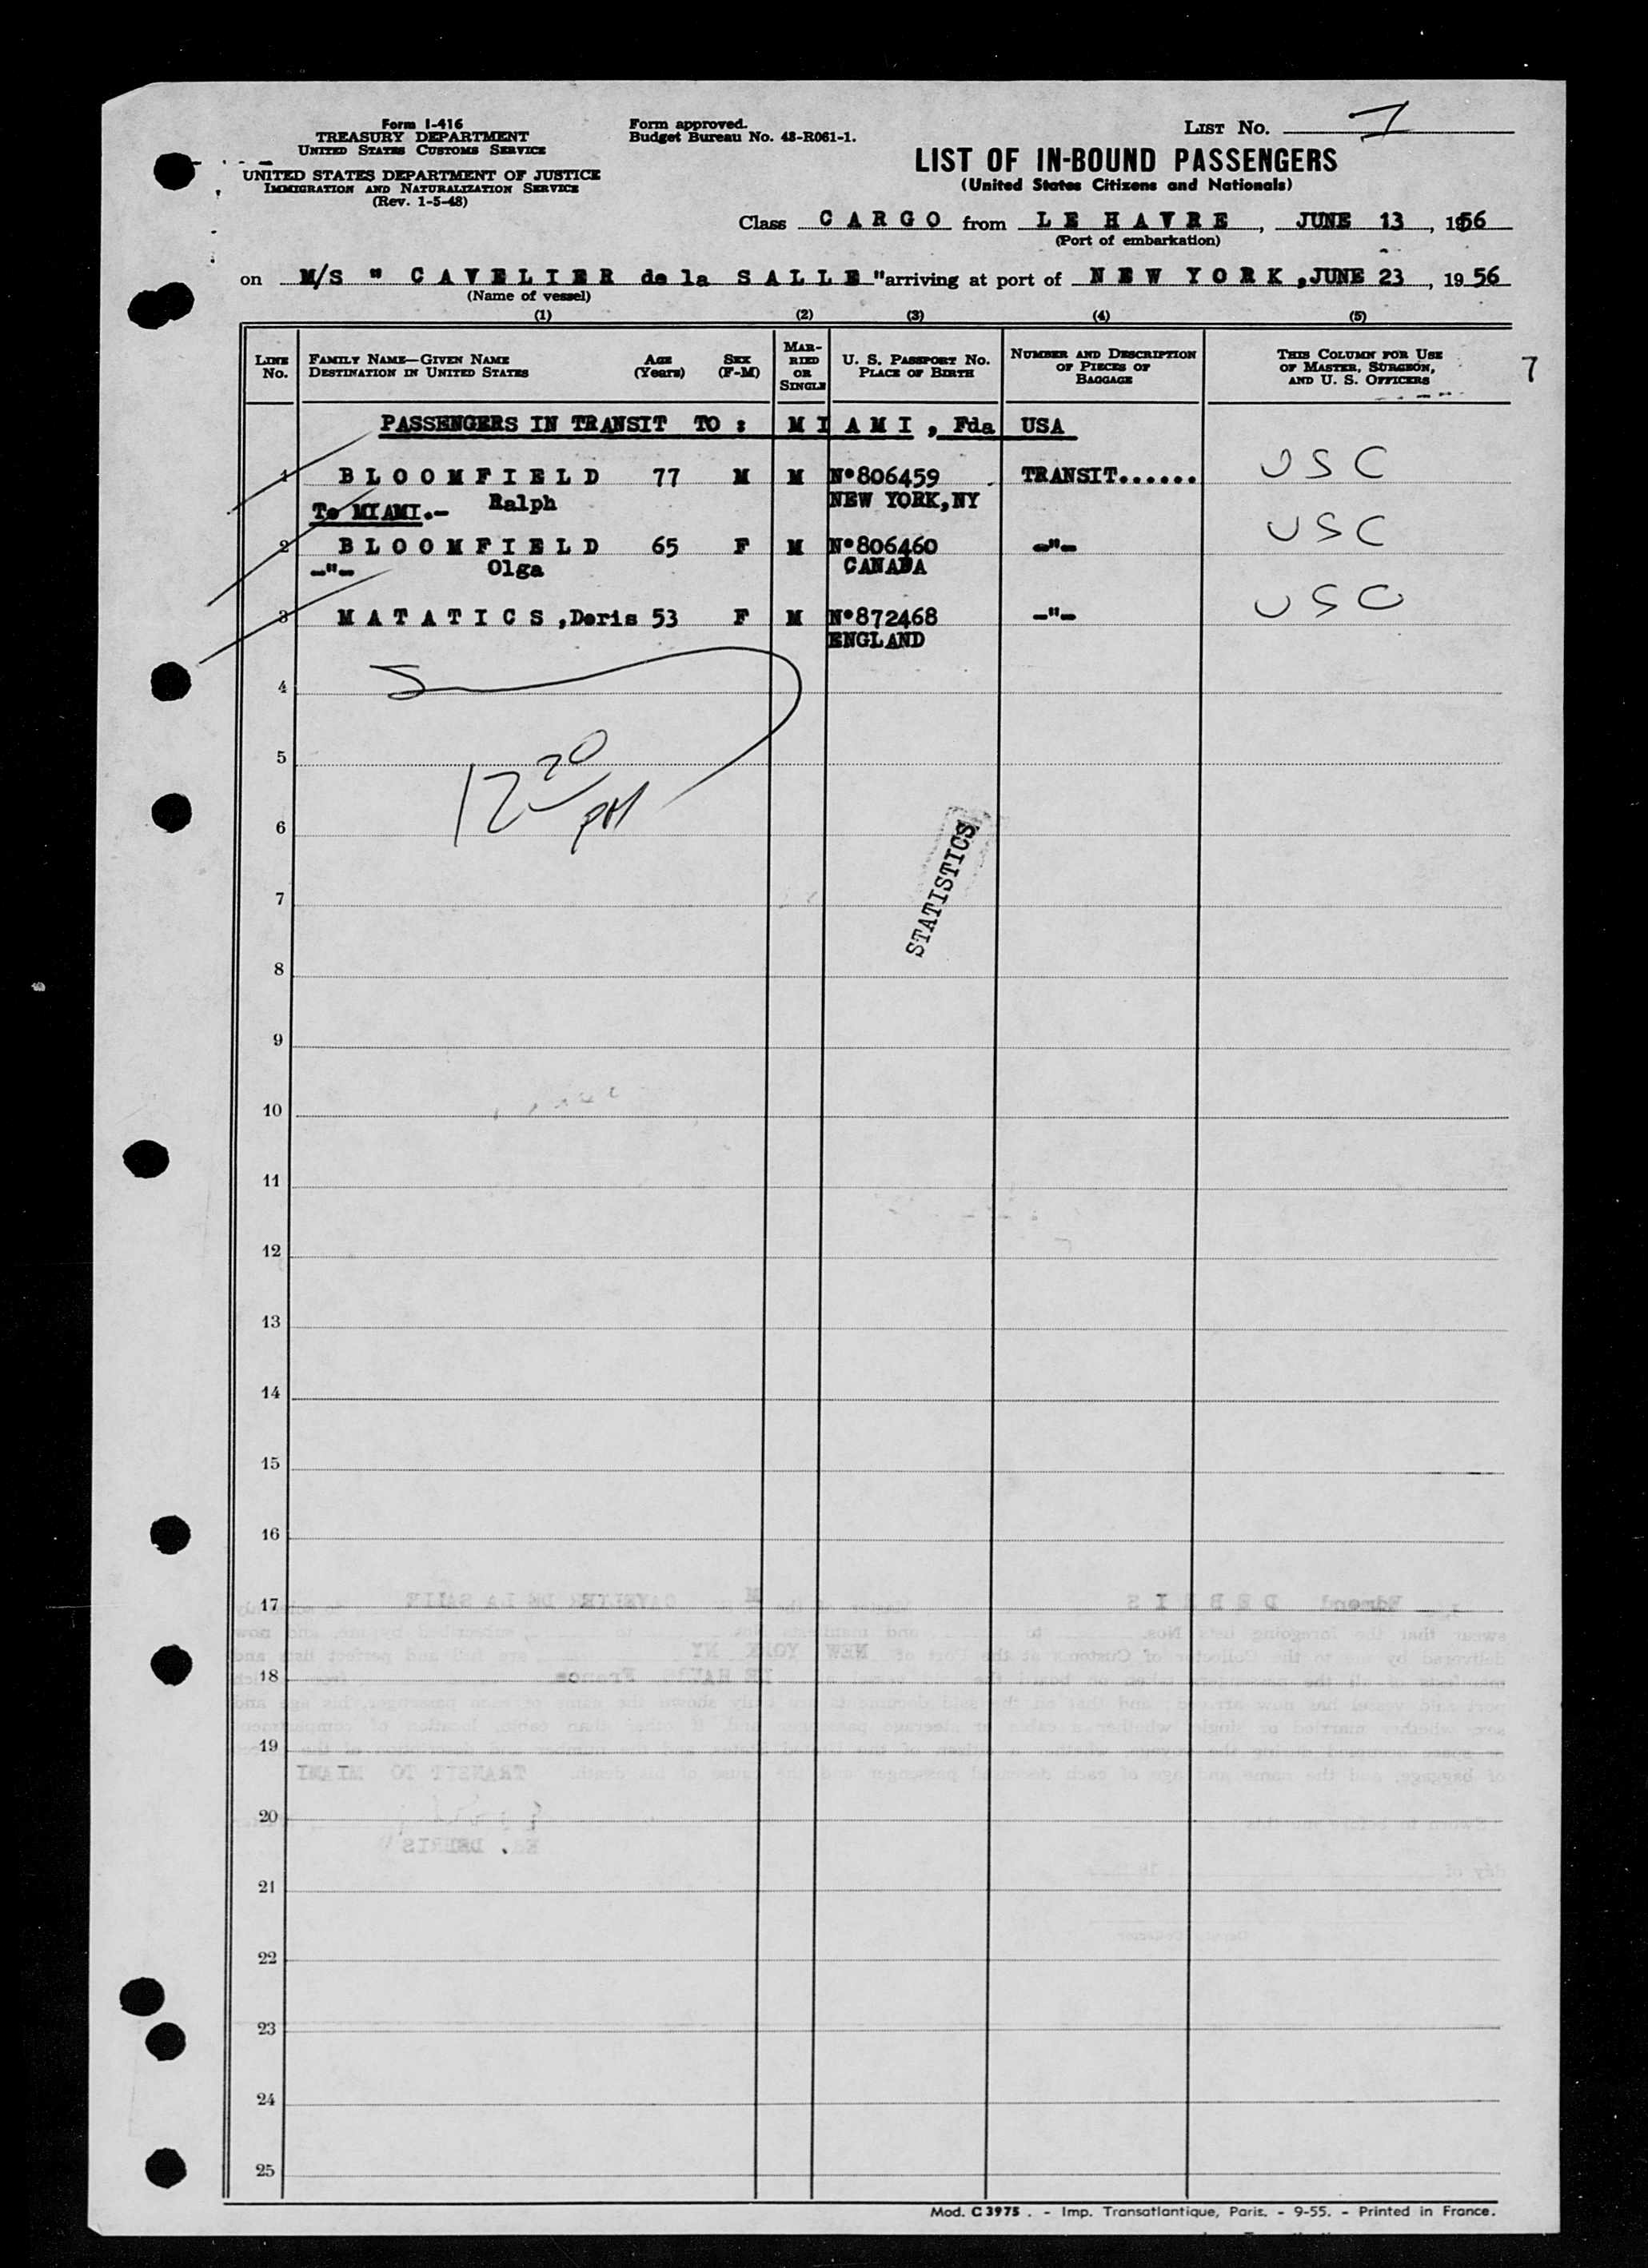 Form I-416
TREASURY DEPARTMENT
UNITED STATES CUSTOMS SERVICE
UNITED STATES DEPARTMENT OF JUSTICE
IMMIGRATION AND NATURALIZATION SERVICE
(Rev. 1-5-48)
Form approved.
Budget Bureau No. 43-R061-1.
LIST NO. 1
LIST OF IN-BOUND PASSENGERS
(United States Citizens and Nationals)
Class CARGO from LE HAVRE, JUNE 13, 1956
(Port of embarkation)
on M/S " CAVELIER de la SALLE " arriving at port of NEW YORK, JUNE 23, 1956
(Name of vessel)
(1) (2) (3) (4) (5)
LINE No. FAMILY NAME—GIVEN NAME DESTINATION IN UNITED STATES AGE (Years) SEX (F-M) MARRIED OR SINGLE U. S. PASSPORT NO. PLACE OF BIRTH NUMBER AND DESCRIPTION OF PIECES OF BAGGAGE THIS COLUMN FOR USE OF MASTER, SURGEON, AND U. S. OFFICERS
7
PASSENGERS IN TRANSIT TO : MIAMI, Fda USA
1 BLOOMFIELD 77 M M N°806459 TRANSIT...... USC
To MIAMI.- Ralph NEW YORK,NY
2 BLOOMFIELD 65 F M N°806460 -"- USC
-"- Olga CANADA
3 MATATICS, Doris 53 F M N°872468 -"- USC
ENGLAND
4
5
12 20 PM
6
STATISTICS
7
8
9
10
11
12
13
14
15
16
17
18
19
20
21
22
23
24
25
Mod. C 3975 . - Imp. Transatlantique, Paris. - 9-55. - Printed in France.